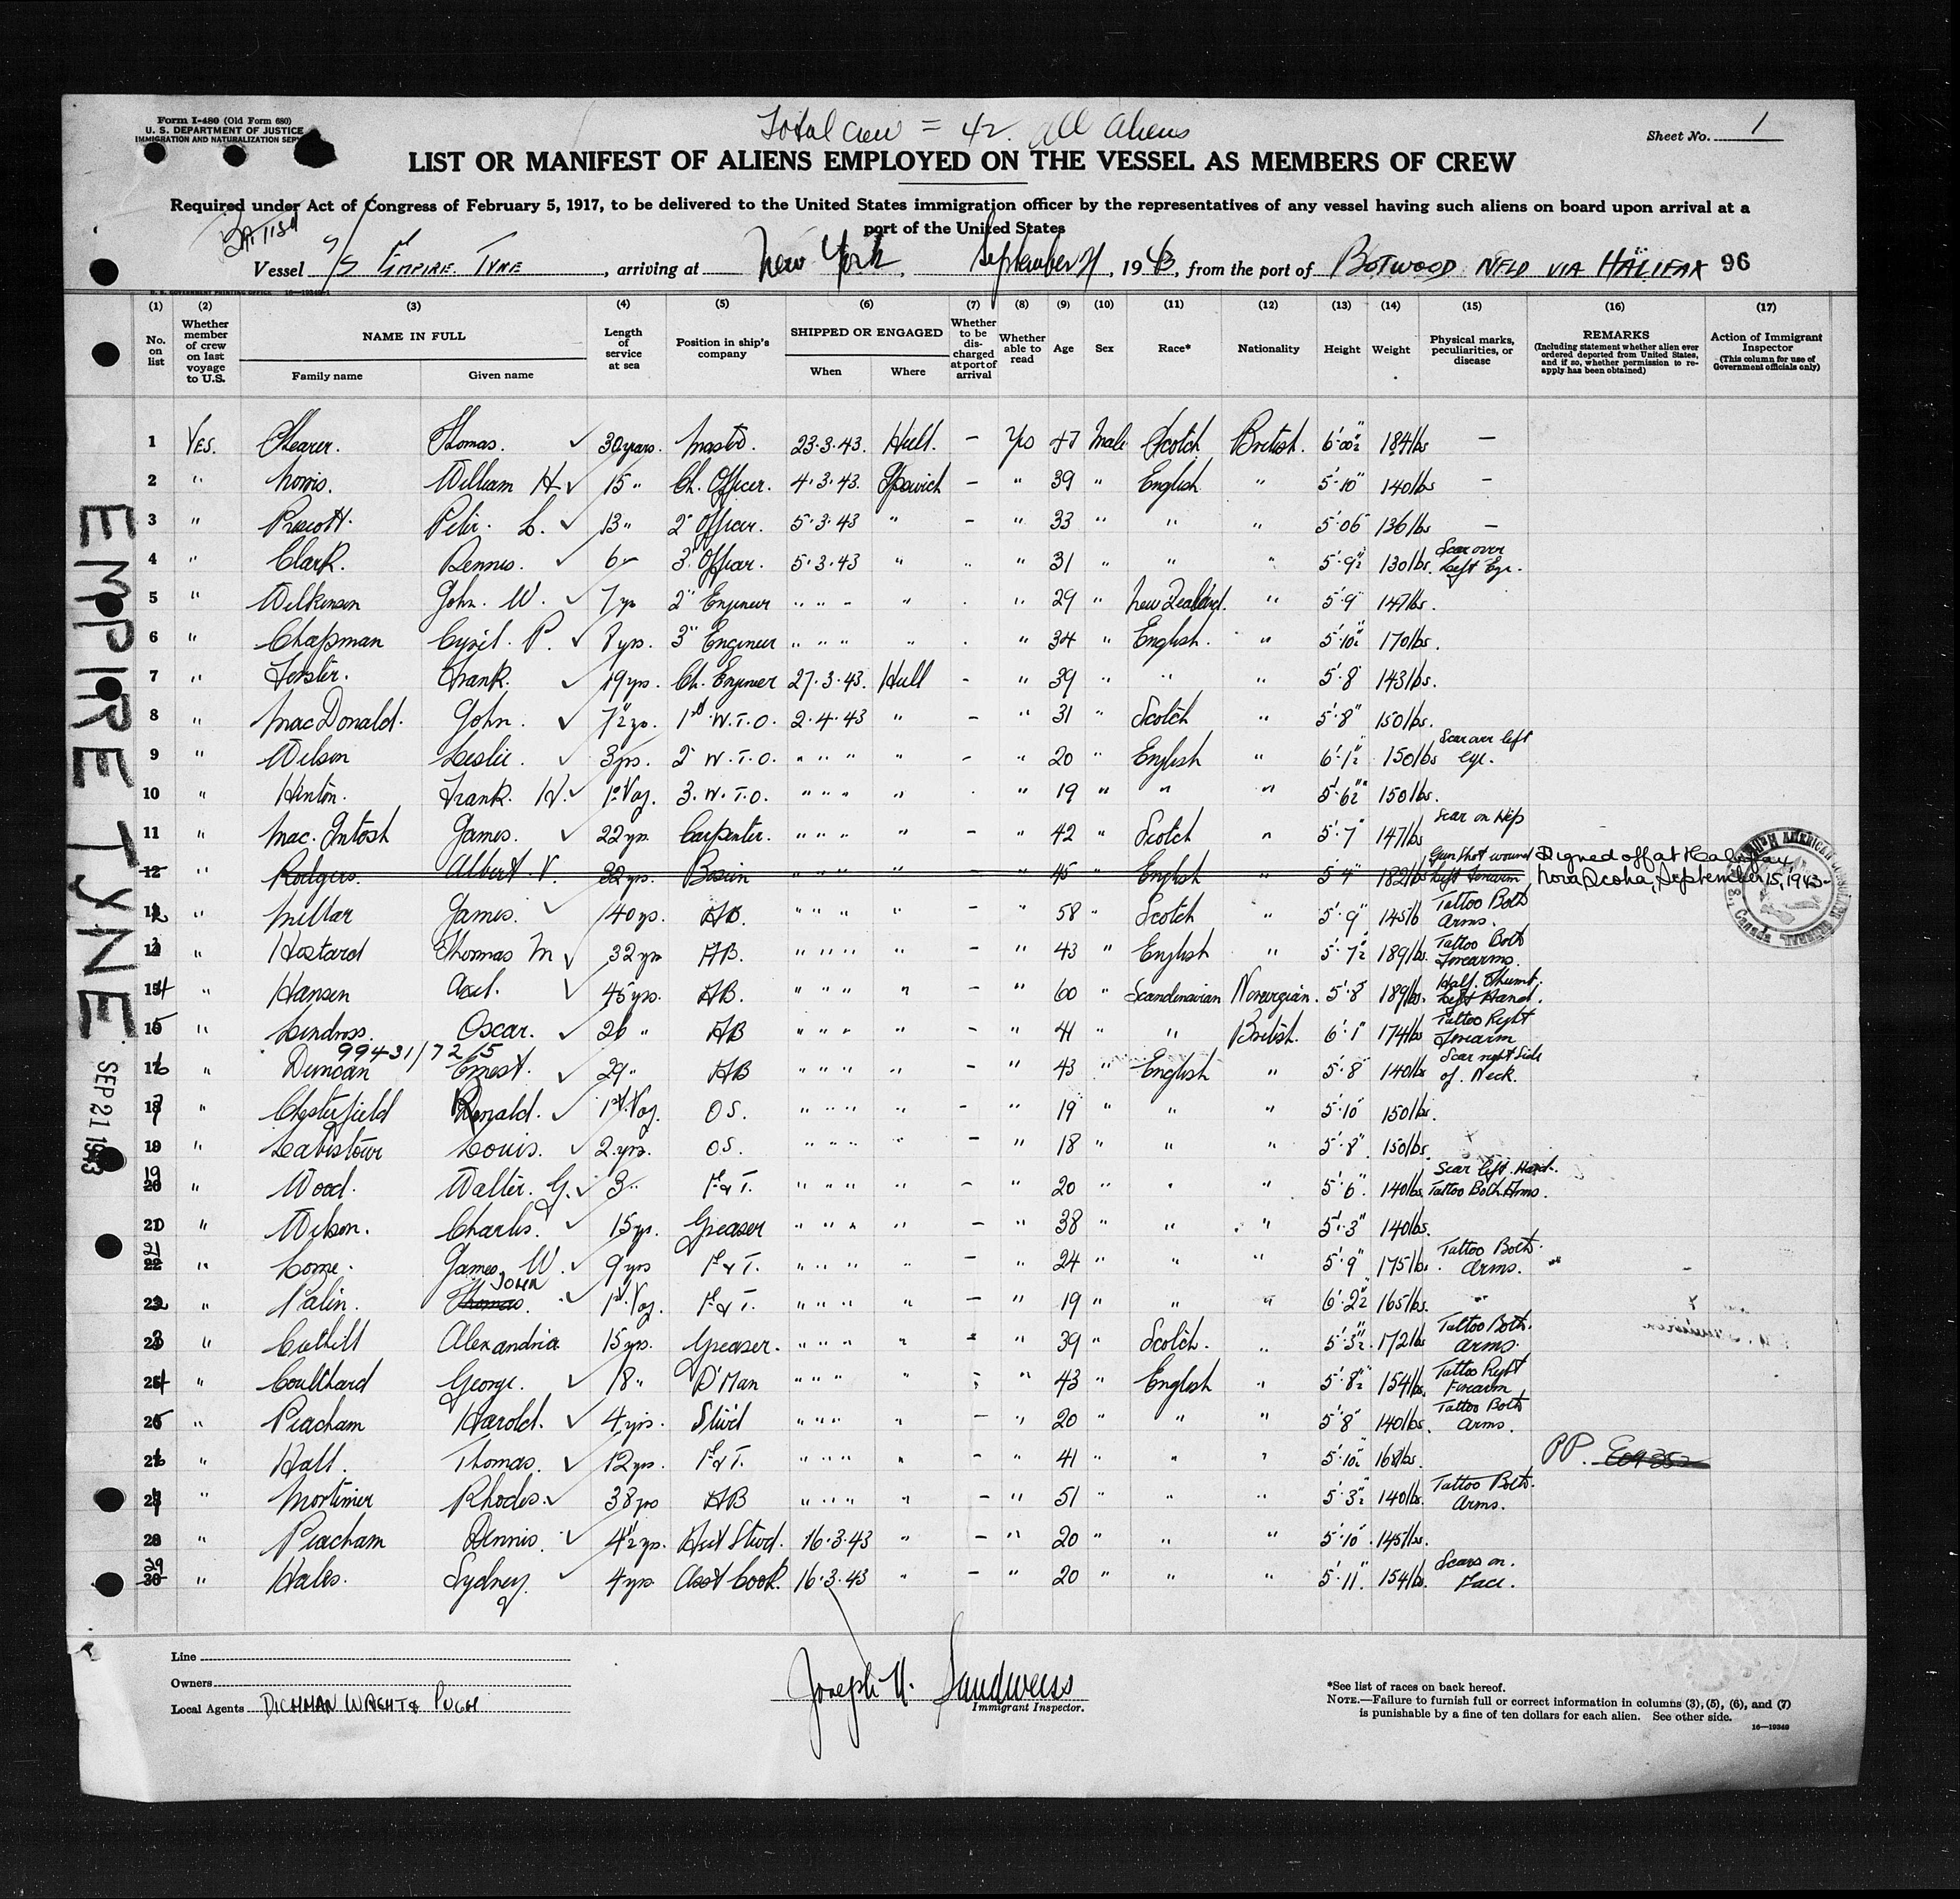 Form I-480 (Old Form 680)
U. S. DEPARTMENT OF JUSTICE
IMMIGRATION AND NATURALIZATION SERV
Total Crew = 42. all aliens
Sheet No. 1
LIST OR MANIFEST OF ALIENS EMPLOYED ON THE VESSEL AS MEMBERS OF CREW
Required under Act of Congress of February 5, 1917, to be delivered to the United States immigration officer by the representatives of any vessel having such aliens on board upon arrival at a
port of the United States
British
Vessel S/S EMPIRE TYNE, arriving at New York, September 21, 1943, from the port of BOTWOOD NFLD VIA HALIFAX 96
(1) (2) (3) (4) (5) (6) (7) (8) (9) (10) (11) (12) (13) (14) (15) (16) (17)
No. on list
Whether member of crew on last voyage to U.S.
NAME IN FULL
Family name
Given name
Length of service at sea
Position in ship's company
SHIPPED OR ENGAGED
When
Where
Whether to be discharged at port of arrival
Whether able to read
Age
Sex
Race*
Nationality
Height
Weight
Physical marks, peculiarities, or disease
REMARKS
(Including statement whether alien ever ordered deported from United States, and if so, whether permission to re-apply has been obtained)
Action of Immigrant Inspector
(This column for use of Government officials only)
1 Yes. Shearer. Thomas. 30 years. Master. 23.3.43. Hull. – Yes 47 Male Scotch British. 6'.00½ 184 lbs –
2 " Norris. William H. 15 " Ch. Officer. 4.3.43. Ipswich – " 39 " English " 5'.10" 140 lbs –
3 " Prescott. Peter. L. 13 " 2" Officer. 5.3.43 " – " 33 " " " 5'.06 136 lbs –
4 " Clark. Dennis. 6 " 3" Officer. 5.3.43 " " " 31 " " " 5'.9½ 130 lbs. Scar over Left Eye.
5 " Wilkinson John. W. 7 yrs 2" Engineer " " " " . " 29 " New Zealand. " 5'.9 147 lbs.
6 " Chapman Cyril. P. 8 yrs. 3" Engineer " " " " . " 34 " English. " 5'.10½ 170 lbs.
7 " Forster. Frank. 19 yrs. Ch. Engineer 27.3.43. Hull – " 39 " " " 5'.8 143 lbs.
8 " MacDonald. John. 7½ yrs. 1st W.T.O. 2.4.43 " – " 31 " Scotch " 5'.8" 150 lbs.
9 " Wilson Leslie. 3 yrs. 2" W.T.O. " " " " – " 20 " English " 6'.1½ 150 lbs Scar over left Eye.
10 " Hinton. Frank. H. 1st Voy. 3. W.T.O. " " " " . " 19 " " " 5'.6½ 150 lbs.
11 " Mac. Intosh James. 22 yrs. Carpenter. " " " " – " 42 " Scotch " 5'.7" 147 lbs Scar on Hip
12 " Rodgers. Albert. V. 32 yrs. Bosun " " " " – " 45 " English " 5'.4" 182 lbs Gun Shot wound Left Forearm Signed off at Halifax, Nova Scotia, September 15, 1943
12 " Millar James. 40 yrs. AB. " " " " – " 58 " Scotch " 5'.9" 145 lb Tattoo Both Arms.
13 " Hostard Thomas M 32 yrs AB. " " " " – " 43 " English " 5'.7½ 189 lbs. Tattoo Both Forearms.
14 " Hansen Axel. 45 yrs. AB. " " " " – " 60 " Scandinavian Norwegian. 5'.8" 189 lbs. Half. Thumb. Left Hand.
15 " Lindross. Oscar. 26 " AB " " " " – " 41 " " British. 6'.1" 174 lbs Tattoo Right Forearm
99431/7215
16 " Duncan Ernest. 29 " AB " " " " – " 43 " English " 5'.8" 140 lbs Scar right Side of. Neck.
17 " Chesterfield Ronald. 1st. Voy. OS. " " " " – " 19 " " " 5'.10" 150 lbs.
18 " Louis. 2. yrs. OS. " " " " – " 18 " " " 5'.8" 150 lbs.
19 " Wood. Walter. G. 3 " F & T. " " " " – " 20 " " " 5'.6" 140 lbs. Scar left. Hand. Tattoo Both Arms.
20 " Wilson. Charles. 15 yrs. Greaser " " " " – " 38 " " " 5'.3" 140 lbs.
21 " James. W. 9 yrs F & T. " " " " – " 24 " " " 5'.9" 175 lbs. Tattoo Both. Arms.
22 " Palin. Thomas. JOHN 1st. Voy. F & T. " " " " – " 19 " " " 6'.2½ 165 lbs.
23 " Cuthill Alexandria 15 yrs. Greaser. " " " " – " 39 " Scotch. " 5'.3½ 172 lbs Tattoo Both. Arms.
24 " Coulthard George. 18 " D'Man " " " " – " 43 " English " 5'.8½ 154 lbs. Tattoo Right Forearm
25 " Peacham Harold. 4 yrs. Stwd " " " " – " 20 " " " 5'.8" 140 lbs. Tattoo Both Arms.
26 " Hall. Thomas. 12 yrs. F & T. " " " " – " 41 " " " 5'.10½ 168 lbs. PP.
27 " Mortimer Rhodes. 38 yrs AB " " " " – " 51 " " " 5'.3½ 140 lbs. Tattoo Both. Arms.
28 " Peacham Dennis. 4½ yrs. Asst Stwd. 16.3.43 " – " 20 " " " 5'.10" 145 lbs.
29 " Hales. Sydney. 4 yrs. Asst Cook. 16.3.43 " – " 20 " " " 5'.11" 154 lbs. Scars on. Face.
EMPIRE TYNE
SEP 21 1943
Line
Owners
Local Agents DICHMAN WRIGHT & PUGH
Joseph N. Sandweiss
Immigrant Inspector.
*See list of races on back hereof.
NOTE.—Failure to furnish full or correct information in columns (3), (5), (6), and (7)
is punishable by a fine of ten dollars for each alien. See other side.
16—19349